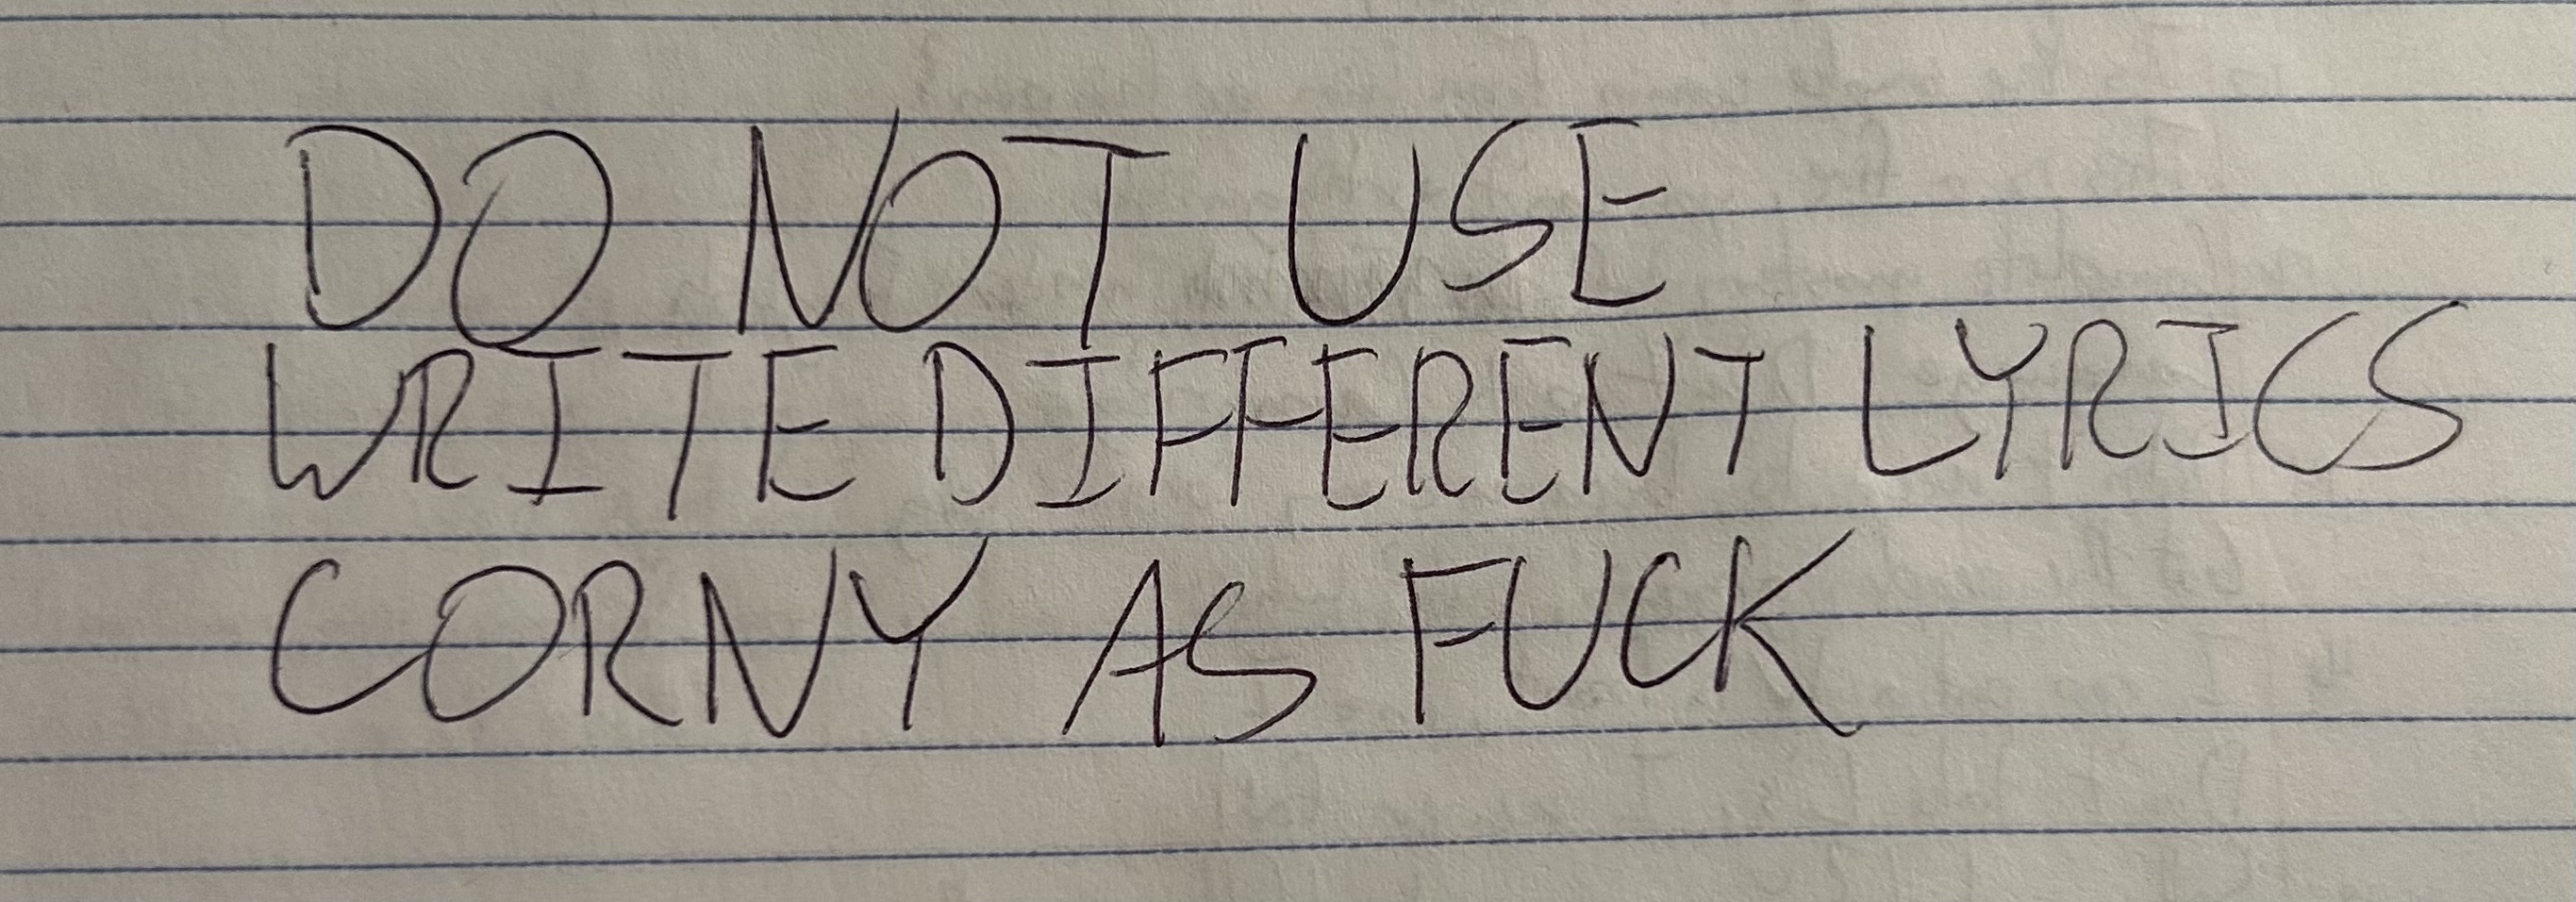 DO NOT USE
WRITE DIFFERENT LYRICS
CORNY AS FUCK